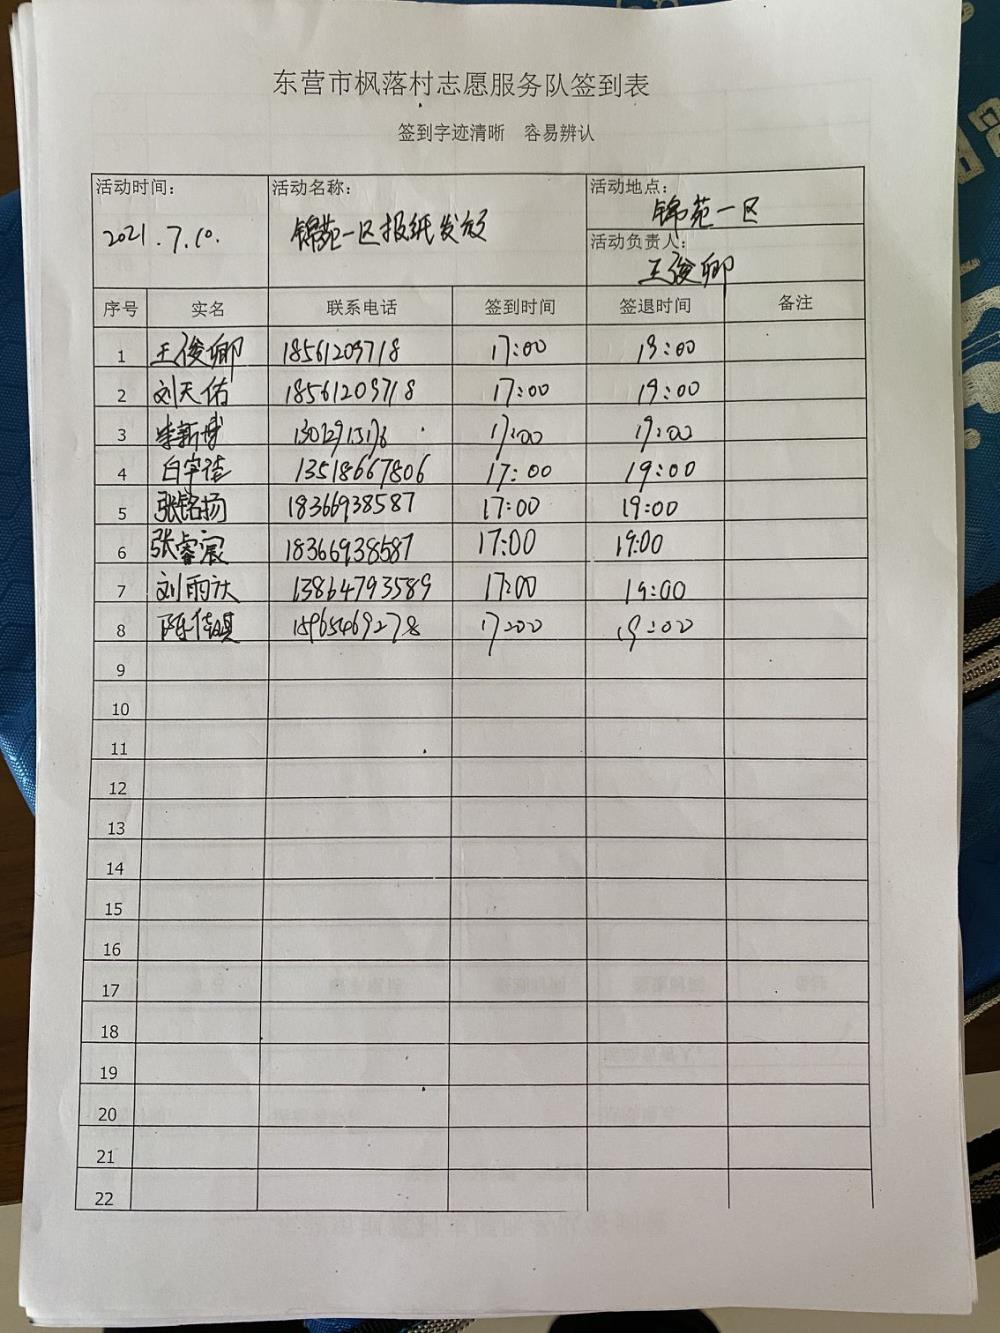 东营市枫落村志愿服务队签到表
签到字迹清晰 容易辨认
活动时间: 活动名称: 活动地点:
2021.7.10. 锦苑一区报纸发放 锦苑一区
活动负责人:
王俊卿
序号 实名 联系电话 签到时间 签退时间 备注
1 王俊卿 18561209718 17:00 19:00
2 刘天佑 18561209718 17:00 19:00
3 李新博 17:00 19:00
4 白宇 13518667806 17:00 19:00
5 张铭扬 18366938587 17:00 19:00
6 张睿宸 18366938587 17:00 19:00
7 刘雨 13864793589 17:00 19:00
8 陈佳琪 15965469278 17:00 19:00
9
10
11
12
13
14
15
16
17
18
19
20
21
22